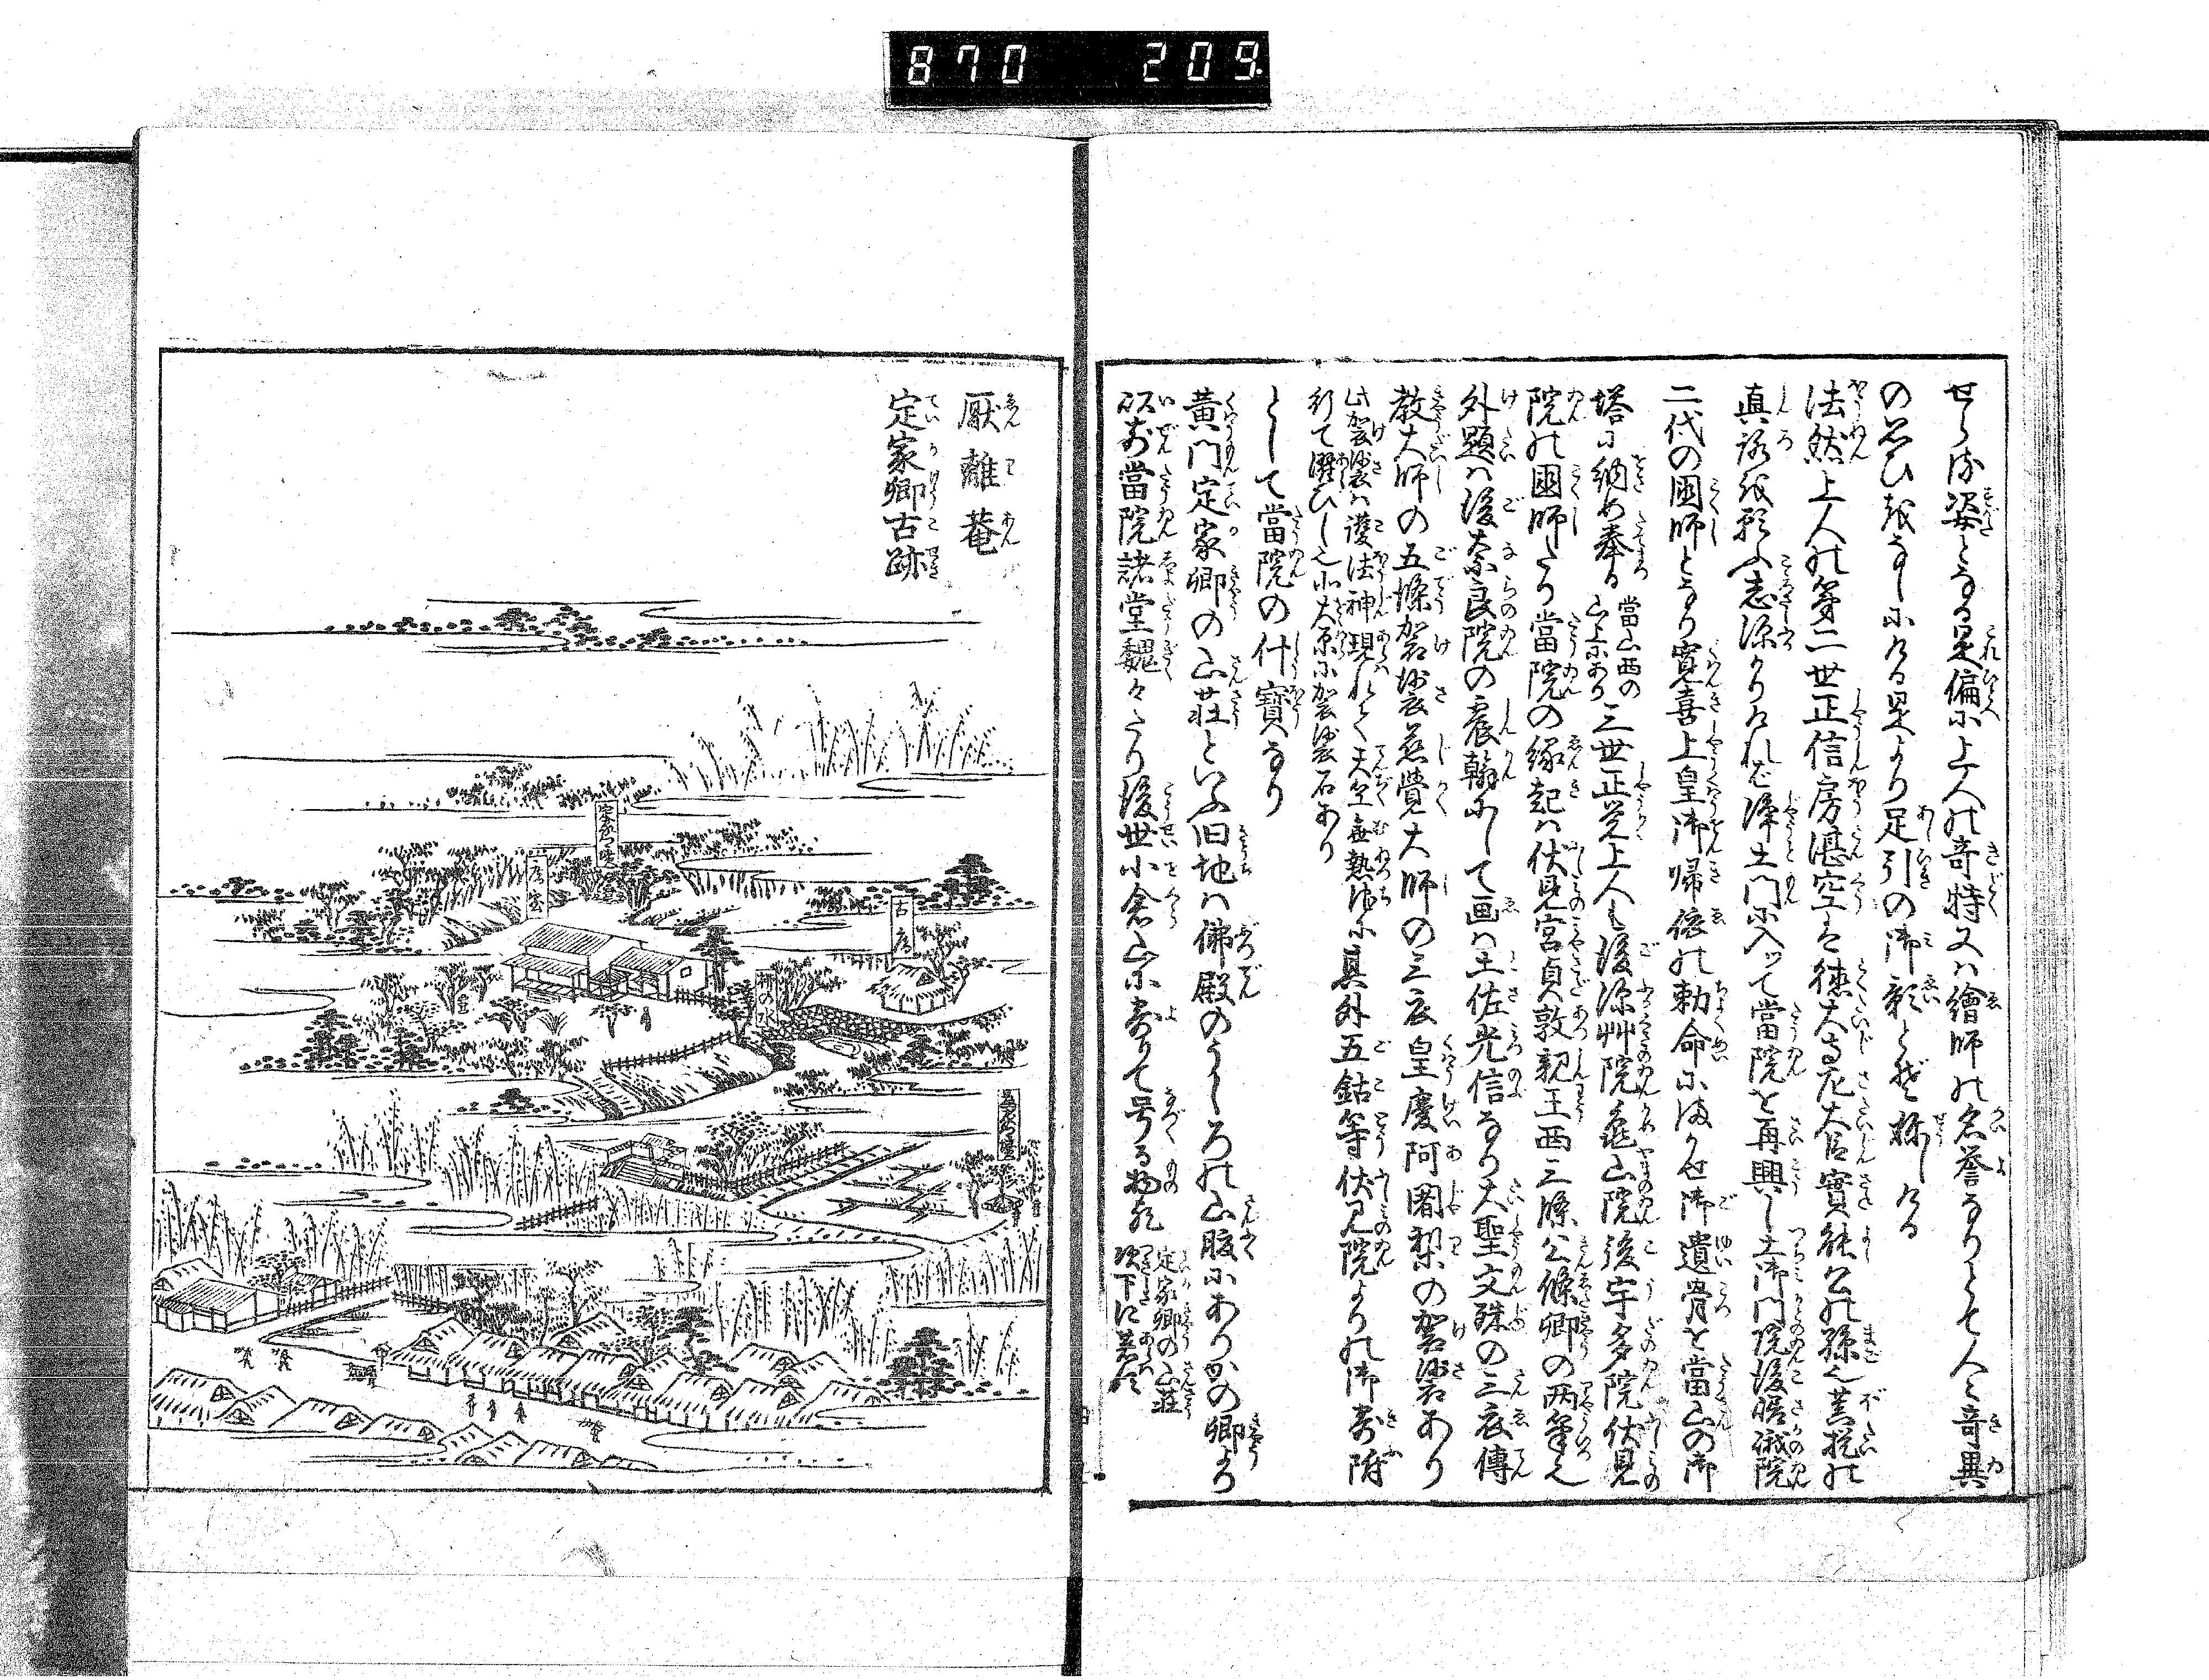 870 209
せらる姿となる是偏に上人の奇特又ハ繪師の名誉なりとて人々奇異
の思ひをなしにける是より足引の御影とぞ称しける
法然上人の第二世正信房湛空ハ徳大寺左大臣實能公の孫也菩提の
真路を願ふ志深かりけれバ浄土門に入ッて當院を再興し土御門院後嵯峨院
二代の國師となり寛喜上皇御帰依の勅命にまかせ御遺骨を當山の御
塔に納め奉る
當山西の
山上にあり
三世正覚上人も後深艸院亀山院後宇多院伏見
院の國師たり當院の縁起ハ伏見宮貞敦親王西三條公條卿の両筆也
外題ハ後奈良院の宸翰にして画ハ土佐光信なり大聖文殊の三衣傳
教大師の五條袈裟慈覺大師の三衣皇慶阿闍梨の袈裟あり
此袈裟ハ護法神現れて天竺無熱池に
行て濯ひし也北大原に袈裟石あり
其外五鈷等伏見院よりの御寄附
として當院の什寶なり
黄門定家卿の山荘といふ旧地ハ佛殿のうしろの山腹にありかの卿より
以前當院諸堂魏々たり後世小倉山に寄りて号る物歟
定家卿の山荘
次下に著ス
厭離菴
定家卿古跡
定家つか
古庵
柳の水